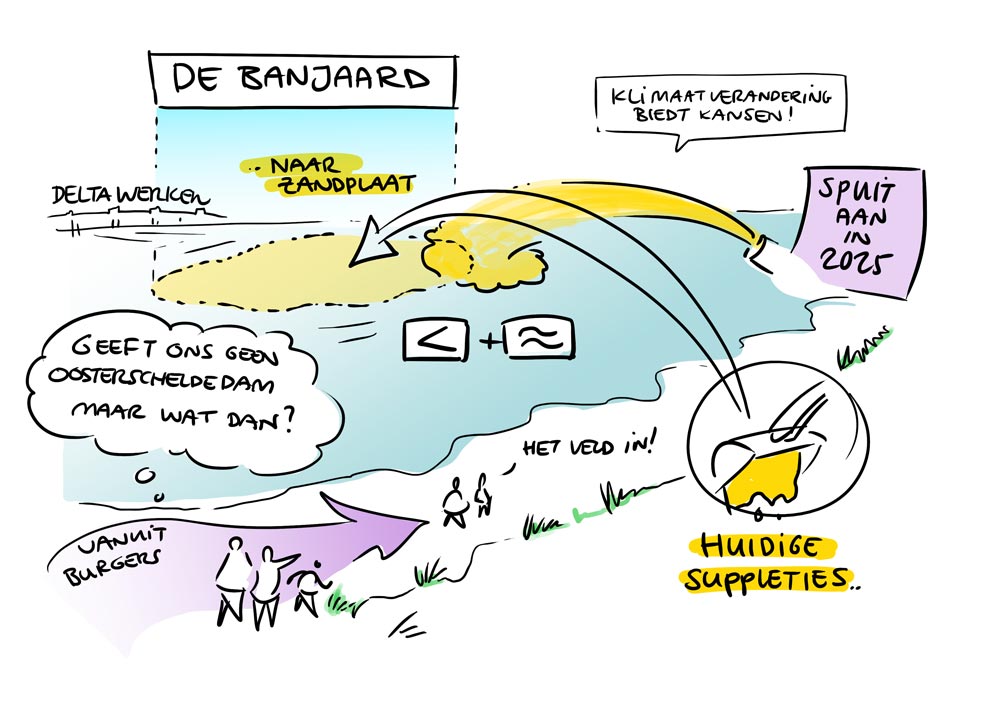 DE BANJAARD
KLIMAATVERANDERING
BIEDT KANSEN!
.. NAAR
ZANDPLAAT
DELTA WERKEN
SPUIT
AAN
IN
2025
< + ≈
GEEFT ONS GEEN
OOSTERSCHELDEDAM
MAAR WAT DAN?
HET VELD IN!
VANUIT
BURGERS
HUIDIGE
SUPPLETIES..